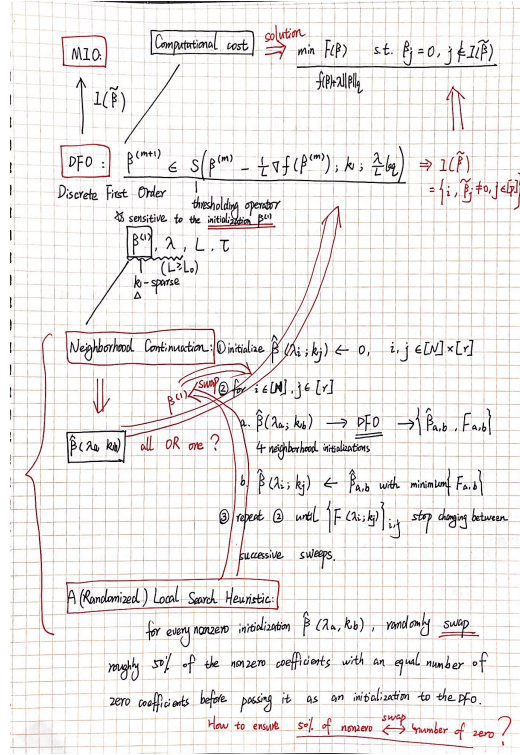 Computational cost
solution ⇒
min F(β) s.t. βj = 0, j ∉ I(β̃)
f(β)+λ||β||q
MIO:
↑ I(β̃)
DFO: β^(m+1) ∈ S(β^(m) − 1/L ∇f(β^(m)); k; λ/L lq) ⇒ I(β̃)
= {i, β̃j ≠0, j∈[p]}
Discrete First Order
thresholding operator
☆ sensitive to the initialization β^(1)
β^(1), λ, L, τ
(L≥L0)
k-sparse
Δ
Neighborhood Continuation: ① initialize β̂(λi; kj) ← 0, i, j ∈[N]×[r]
β^(1) swap
② for i∈[N], j∈[r]
β̂(λa, kb) all OR one ?
a. β̂(λa; kb) → DFO → {β̂a,b, Fa,b}
4 neighborhood initializations
b. β̂(λi; kj) ← β̂a,b with minimum{Fa,b}
③ repeat ② until {F(λi; kj)}i,j stop changing between
successive sweeps.
A (Randomized) Local Search Heuristic:
for every nonzero initialization β̂(λa, kb), randomly swap
roughly 50% of the nonzero coefficients with an equal number of
zero coefficients before passing it as an initialization to the DFO.
How to ensure 50% of nonzero ⟷ swap number of zero ?